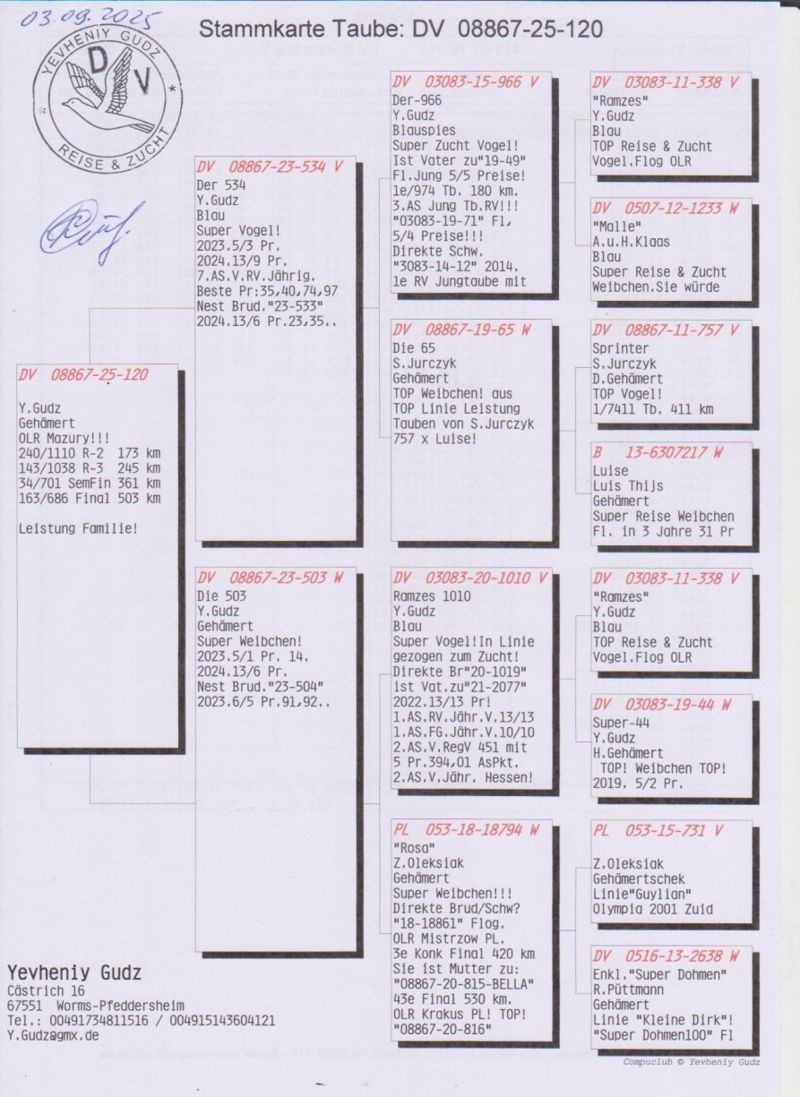 03.09.2025
Stammkarte Taube: DV 08867-25-120
YEVHENIY GUDZ
D V
* *
REISE & ZUCHT
DV 08867-25-120
Y.Gudz
Gehämert
OLR Mazury!!!
240/1110 R-2 173 km
143/1038 R-3 245 km
34/701 SemFin 361 km
163/686 Final 503 km
Leistung Familie!
DV 08867-23-534 V
Der 534
Y.Gudz
Blau
Super Vogel!
2023.5/3 Pr.
2024.13/9 Pr.
7.AS.V.RV.Jährig.
Beste Pr:35,40,74,97
Nest Brud."23-533"
2024.13/6 Pr.23,35..
DV 08867-23-503 W
Die 503
Y.Gudz
Gehämert
Super Weibchen!
2023.5/1 Pr. 14.
2024.13/6 Pr.
Nest Brud."23-504"
2023.6/5 Pr.91,92..
DV 03083-15-966 V
Der-966
Y.Gudz
Blauspies
Super Zucht Vogel!
Ist Vater zu"19-49"
Fl.Jung 5/5 Preise!
1e/974 Tb. 180 km.
3.AS Jung Tb.RV!!!
"03083-19-71" Fl,
5/4 Preise!!!
Direkte Schw.
"3083-14-12" 2014.
1e RV Jungtaube mit
DV 08867-19-65 W
Die 65
S.Jurczyk
Gehämert
TOP Weibchen! aus
TOP Linie Leistung
Tauben von S.Jurczyk
757 x Luise!
DV 03083-20-1010 V
Ramzes 1010
Y.Gudz
Blau
Super Vogel!In Linie
gezogen zum Zucht!
Direkte Br"20-1019"
ist Vat.zu"21-2077"
2022.13/13 Pr!
1.AS.RV.Jähr.V.13/13
1.AS.FG.Jähr.V.10/10
2.AS.V.RegV 451 mit
5 Pr.394,01 AsPkt.
2.AS.V.Jähr. Hessen!
PL 053-18-18794 W
"Rosa"
Z.Oleksiak
Gehämert
Super Weibchen!!!
Direkte Brud/Schw?
"18-18861" Flog.
OLR Mistrzow PL.
3e Konk Final 420 km
Sie ist Mutter zu:
"08867-20-815-BELLA"
43e Final 530 km.
OLR Krakus PL! TOP!
"08867-20-816"
DV 03083-11-338 V
"Ramzes"
Y.Gudz
Blau
TOP Reise & Zucht
Vogel.Flog OLR
DV 0507-12-1233 W
"Malle"
A.u.H.Klaas
Blau
Super Reise & Zucht
Weibchen.Sie würde
DV 08867-11-757 V
Sprinter
S.Jurczyk
D.Gehämert
TOP Vogel!
1/7411 Tb. 411 km
B 13-6307217 W
Luise
Luis Thijs
Gehämert
Super Reise Weibchen
Fl. in 3 Jahre 31 Pr
DV 03083-11-338 V
"Ramzes"
Y.Gudz
Blau
TOP Reise & Zucht
Vogel.Flog OLR
DV 03083-19-44 W
Super-44
Y.Gudz
H.Gehämert
TOP! Weibchen TOP!
2019. 5/2 Pr.
PL 053-15-731 V
Z.Oleksiak
Gehämertschek
Linie"Guylian"
Olympia 2001 Zuid
DV 0516-13-2638 W
Enkl."Super Dohmen"
R.Püttmann
Gehämert
Linie "Kleine Dirk"!
"Super Dohmen100" Fl
Yevheniy Gudz
Cöstrich 16
67551 Worms-Pfeddersheim
Tel.: 00491734811516 / 004915143604121
Y.Gudz@gmx.de
Compuclub © Yevheniy Gudz